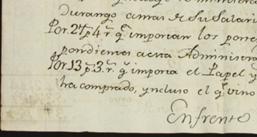 Durango a mas de su Salario
Por 27 p 4 r q importan los
pondientes a esta Administra
Por 13 p 3 r q importa el Papel q
ha comprado, yncluso el q vino
Enfrente